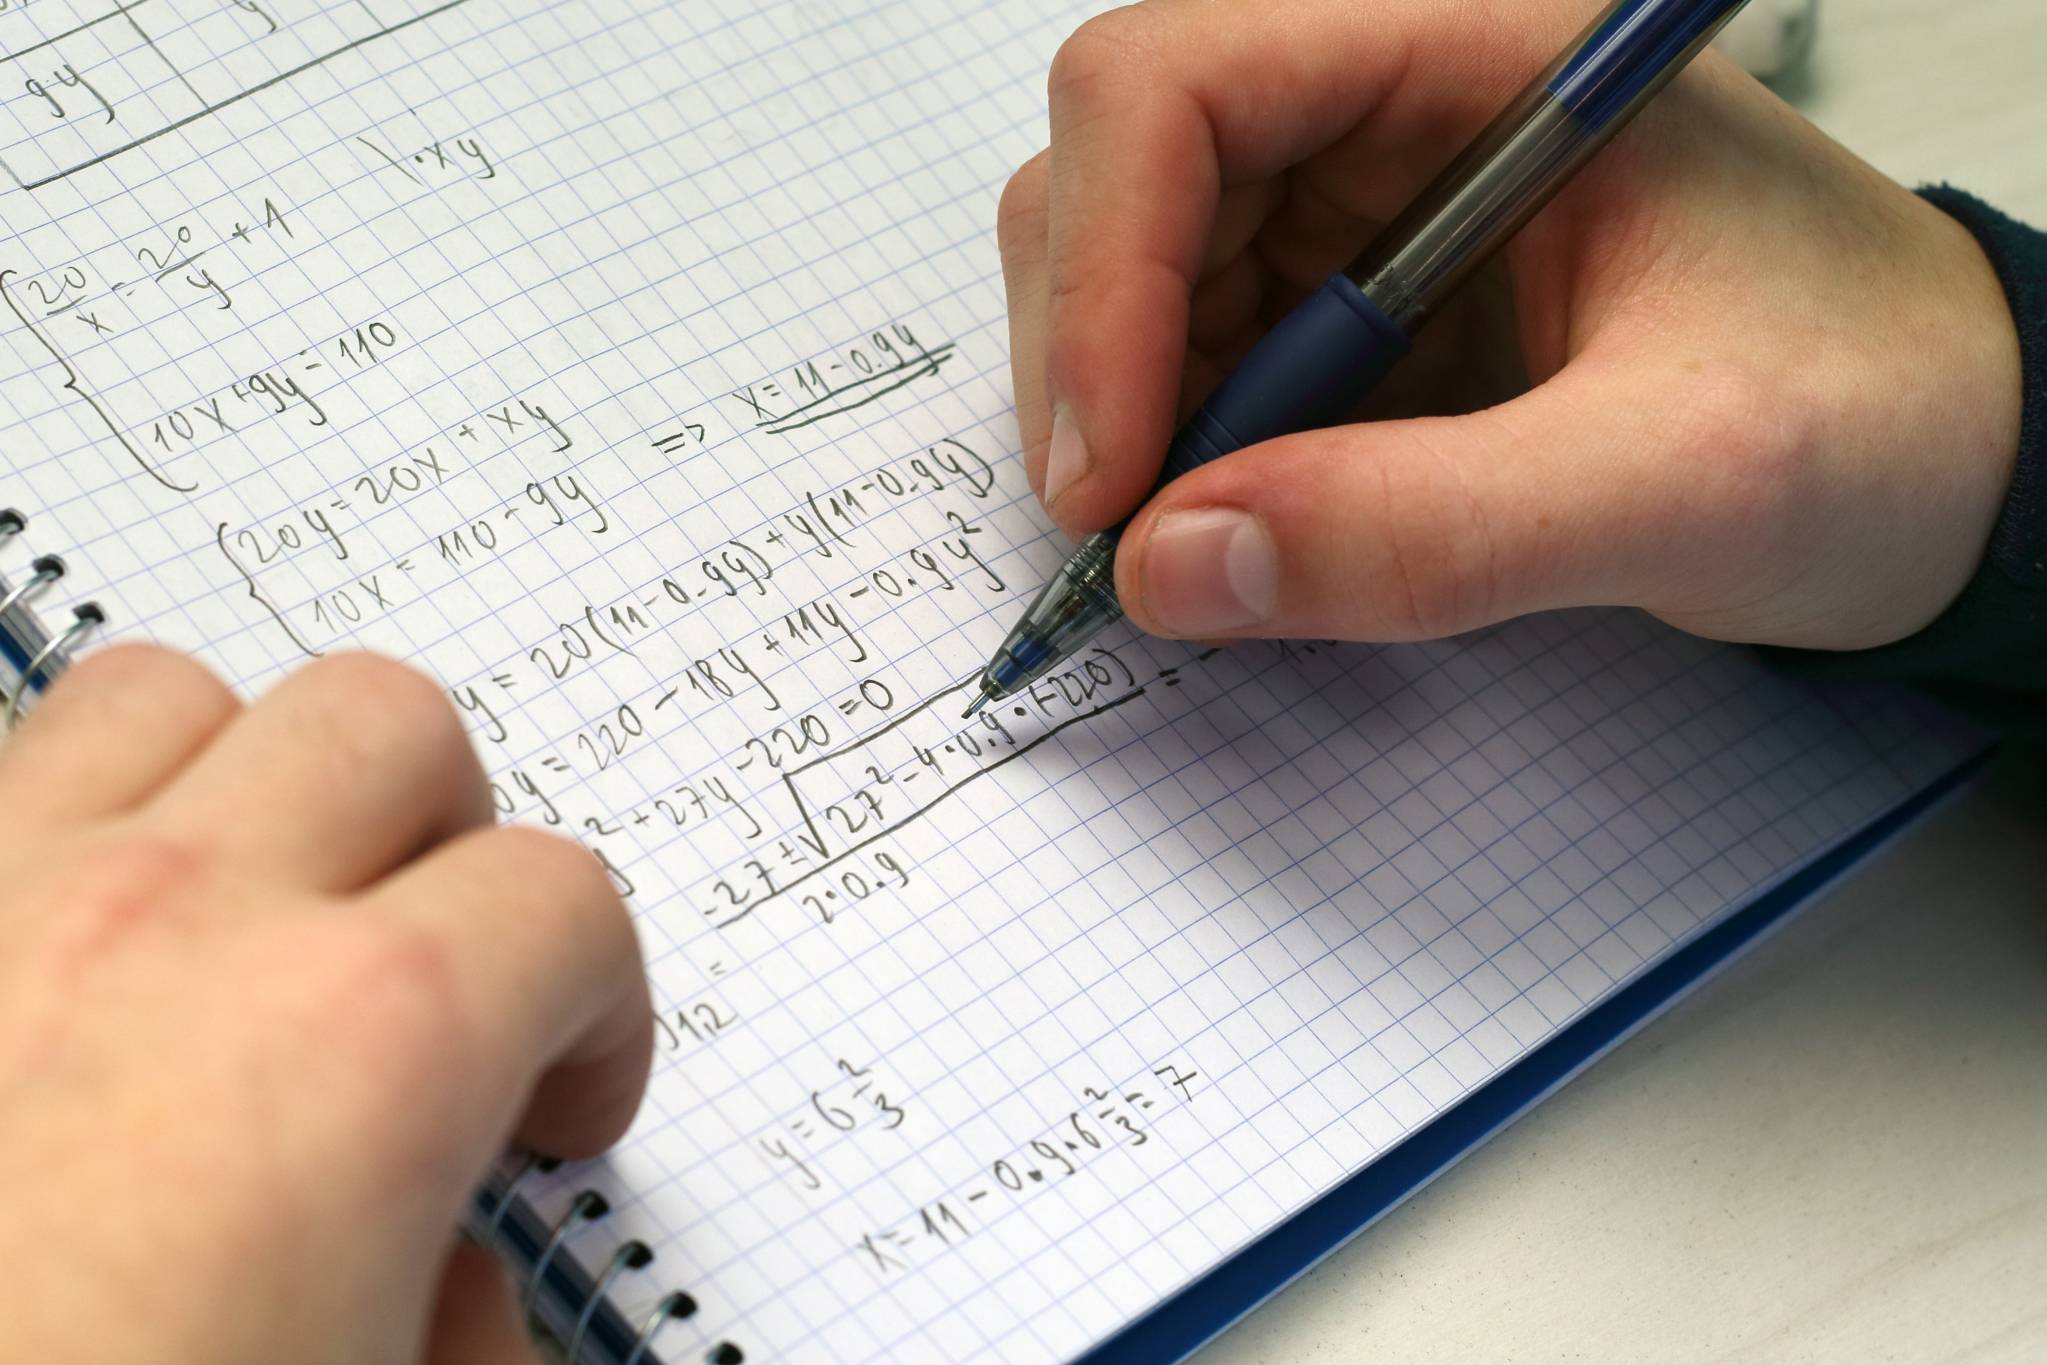 9y y
\ · xy
20/x = 20/y + 1
10x + 9y = 110
20y = 20x + xy
10x = 110 - 9y => x = 11 - 0.9y
y = 20(11 - 0.9y) + y(11 - 0.9y)
0y = 220 - 18y + 11y - 0.9y²
² + 27y - 220 = 0
-27 ± √27² - 4 · 0.9 · (-220) =
2 · 0.9
)1,2 =
y = 6 2/3
x = 11 - 0.9 · 6 2/3 = 7